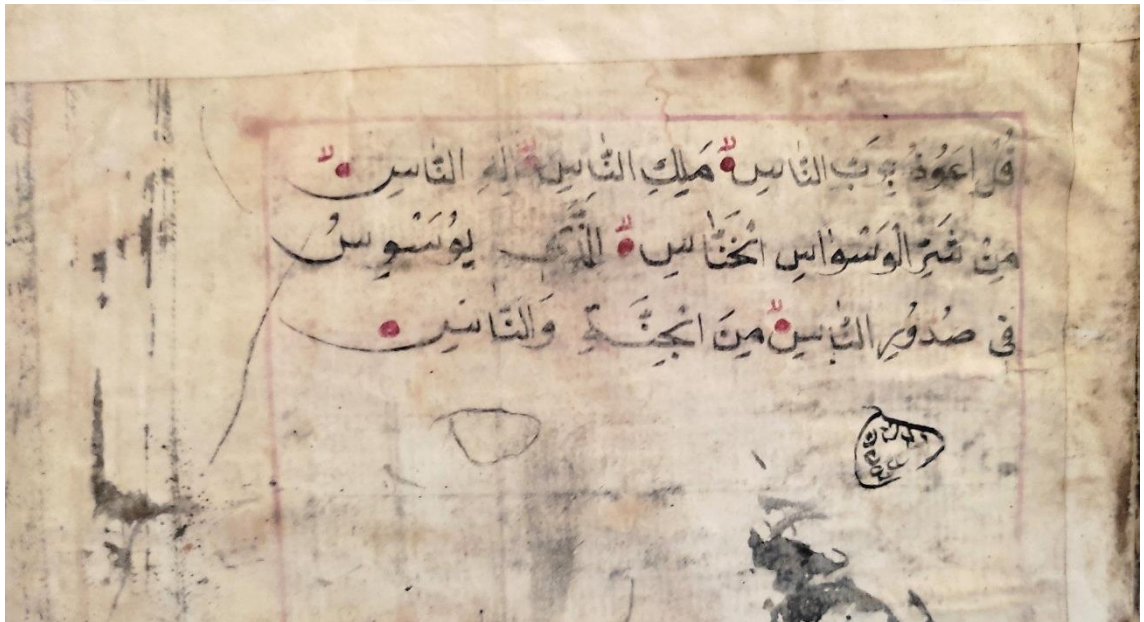 قُلْ اَعُوذُ بِرَبِّ النَّاسِۙ مَلِكِ النَّاسِۙ اِلٰهِ النَّاسِۙ
مِنْ شَرِّ الْوَسْوَاسِ الْخَنَّاسِۙ الَّذ۪ى يُوَسْوِسُ
فِى صُدُورِ النَّاسِۙ مِنَ الْجِنَّةِ وَالنَّاسِ